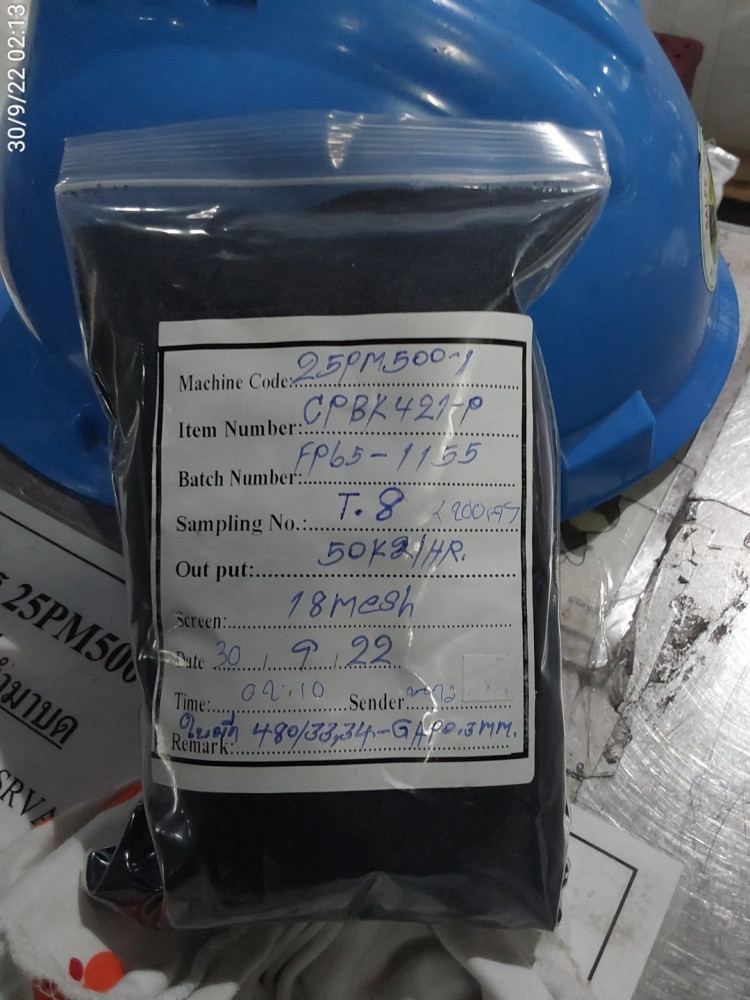 30/9/22 02:13
Machine Code: 25PM500-1
Item Number: CPBK421-P
Batch Number: FP65-1155
Sampling No.: T.8
Out put: 50Kg/HR.
Screen: 18mesh
Date 30 / 9 / 22
Time: 02:10 Sender
Remark: ใบมีด 480/33,34-GAP0.3MM.
25PM500
SRVA